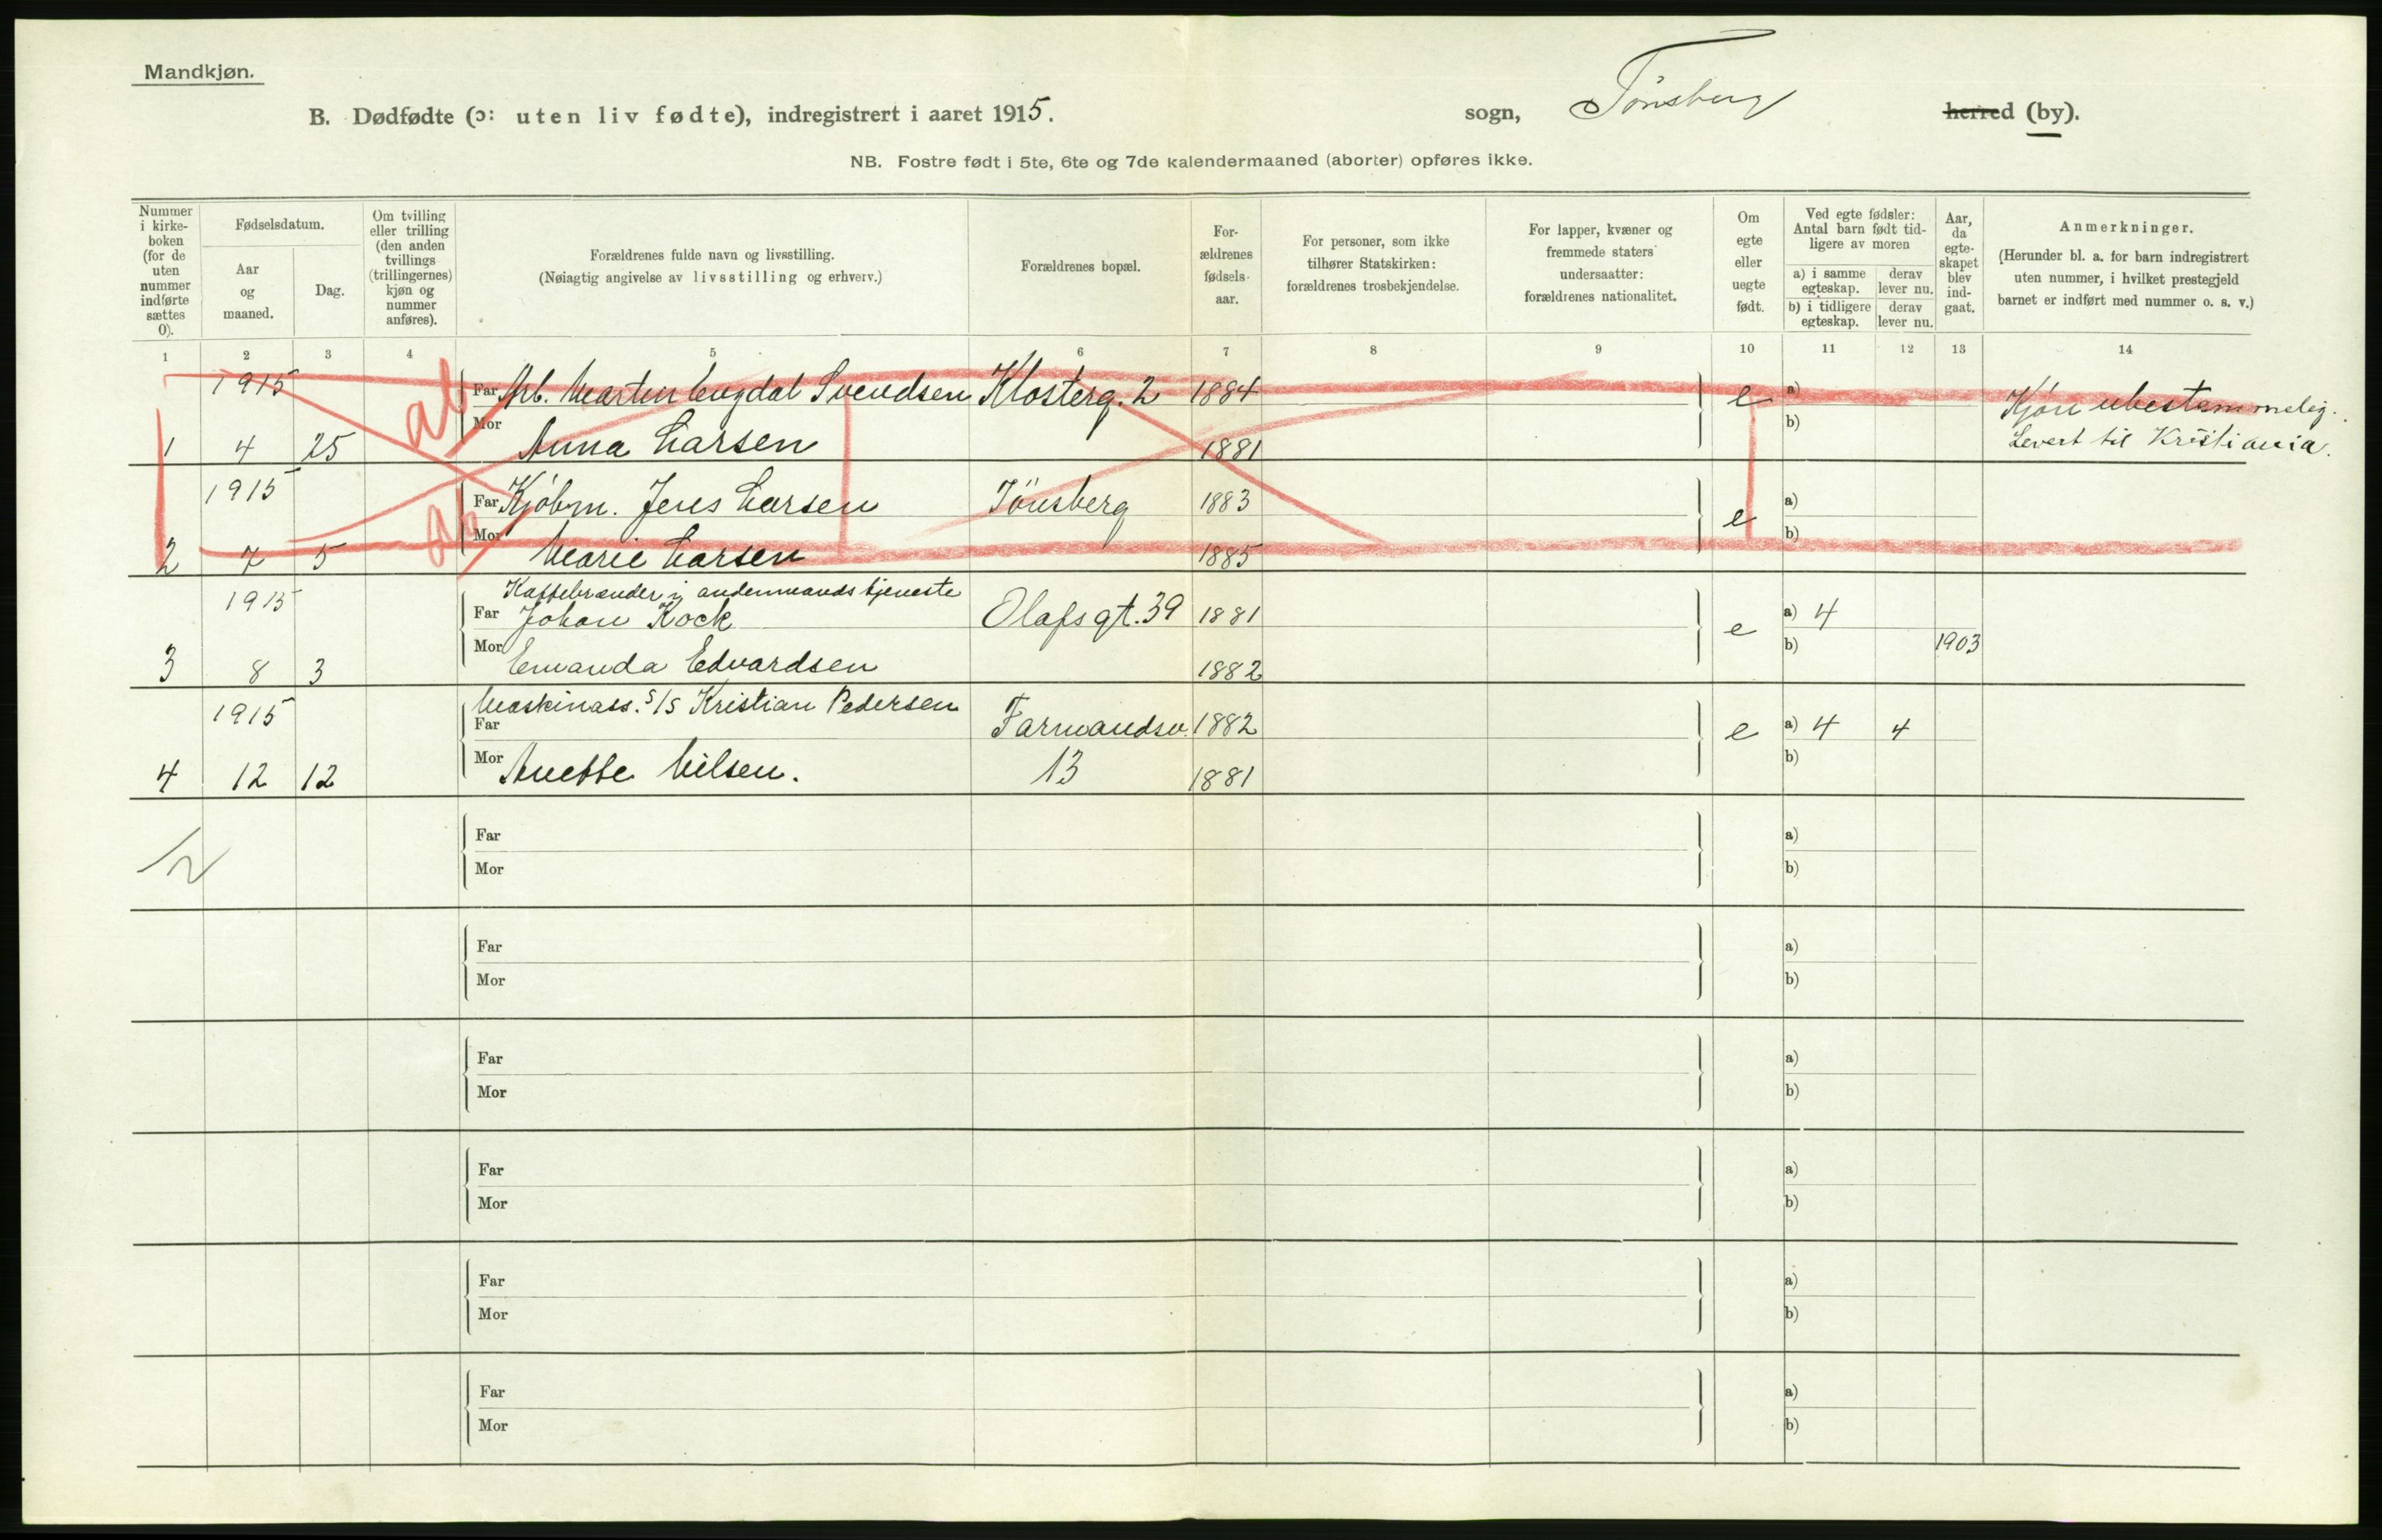 Mandkjøn.
B. Dødfødte (ɔ: uten liv fødte), indregistrert i aaret 1915. sogn, Tønsberg herred (by).
NB. Fostre født i 5te, 6te og 7de kalendermaaned (aborter) opføres ikke.
Nummer i kirke-boken (for de uten nummer indførte sættes 0).
Fødselsdatum.
Aar og maaned.
Dag.
Om tvilling eller trilling (den anden tvillings (trillingernes) kjøn og nummer anføres).
Forældrenes fulde navn og livsstilling.
(Nøiagtig angivelse av livsstilling og erhverv.)
Forældrenes bopæl.
For-ældrenes fødsels-aar.
For personer, som ikke tilhører Statskirken: forældrenes trosbekjendelse.
For lapper, kvæner og fremmede staters undersaatter: forældrenes nationalitet.
Om egte eller uegte født.
Ved egte fødsler: Antal barn født tid-ligere av moren
a) i samme egteskap. derav lever nu.
b) i tidligere egteskap. derav lever nu.
Aar, da egte-skapet blev ind-gaat.
Anmerkninger.
(Herunder bl. a. for barn indregistrert uten nummer, i hvilket prestegjeld barnet er indført med nummer o. s. v.)
1 2 3 4 5 6 7 8 9 10 11 12 13 14
1915 ab Far Arb. Martin Engdal Svendsen Klosterg. 2 1884 e a) Kjøn ubestemmelig.
1 4 25 Mor Anna Larsen 1881 b) Levert til Kristiania.
1915 ab Far Kjøbm. Jens Larsen Tønsberg 1883 e a)
2 7 5 Mor Marie Larsen 1885 b)
Kaffebrænder i andenmands tjeneste
1915 Far Johan Kock Olafsgt. 39 1881 e a) 4
3 8 3 Mor Emanda Edvardsen 1882 b) 1903
Maskinass. s/s Kristian Pedersen
1915 Far Farmandsv. 1882 e a) 4 4
4 12 12 Mor Anette Nilsen. 13 1881 b)
Far a)
Mor b)
Far a)
Mor b)
Far a)
Mor b)
Far a)
Mor b)
Far a)
Mor b)
Far a)
Mor b)